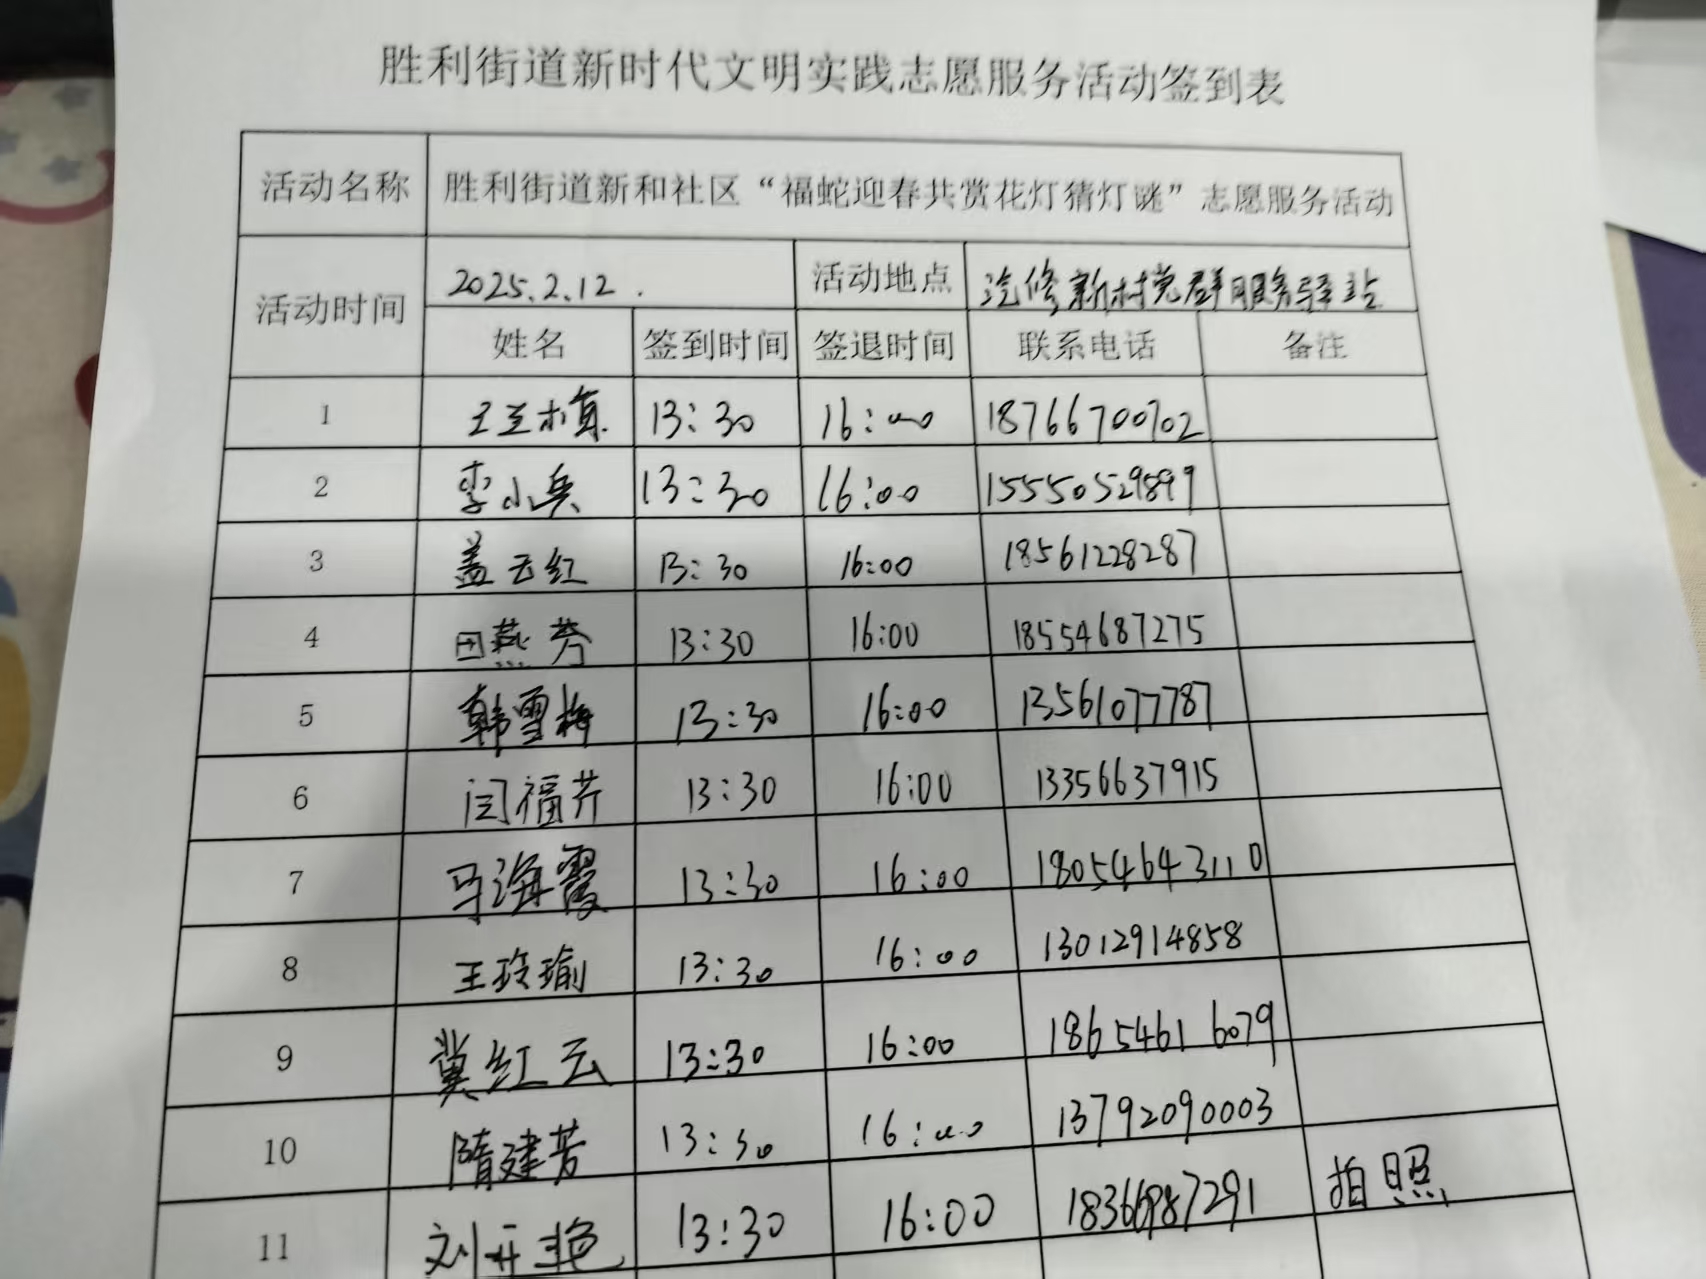 胜利街道新时代文明实践志愿服务活动签到表
活动名称 胜利街道新和社区“福蛇迎春共赏花灯猜灯谜”志愿服务活动
活动时间 2025.2.12. 活动地点 汽修新村党群服务驿站
姓名 签到时间 签退时间 联系电话 备注
1 王兰桢 13:30 16:00 18766700702
2 李小兵 13:30 16:00 15550529897
3 盖云红 13:30 16:00 18561228287
4 田燕芹 13:30 16:00 18554687275
5 韩雪梅 13:30 16:00 13561077787
6 闫福芹 13:30 16:00 13356637915
7 马海霞 13:30 16:00 18054643110
8 王玲瑜 13:30 16:00 13012914858
9 冀红云 13:30 16:00 18654616079
10 隋建芳 13:30 16:00 13792090003
11 刘开艳 13:30 16:00 18366987291 拍照